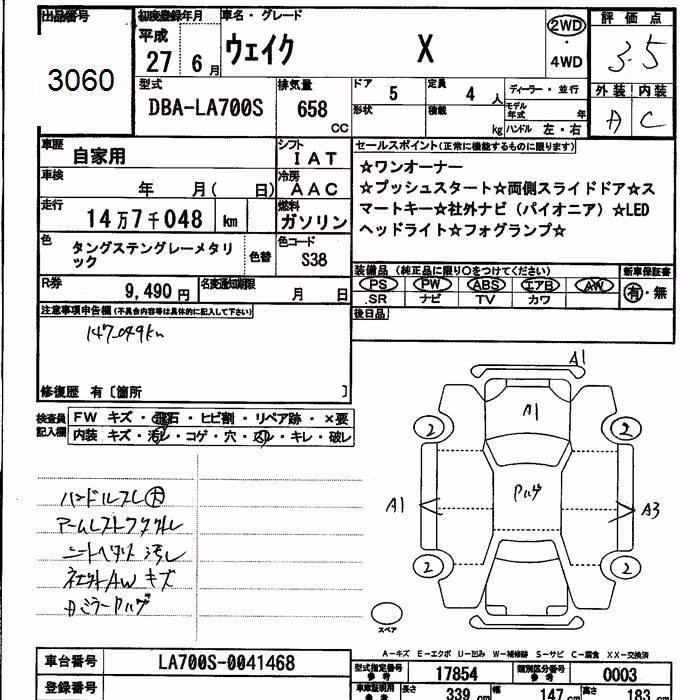 出品番号
3060
初度登録年月
平成
27 6月
車名・グレード
ウェイク X
2WD
・
4WD
評価点
3.5
外装 内装
A C
型式
DBA-LA700S
排気量
658
CC
ドア 5
形状
定員 4 人
積載 kg
ディーラー・並行
モデル年式 年
ハンドル 左・右
車歴
自家用
シフト
IAT
車検
年 月( 日)
冷房
AAC
走行
14万7千048 km
燃料
ガソリン
色
タングステングレーメタリック
色替
色コード
S38
R券
9,490円
名変通知期限
月 日
セールスポイント(正常に機能するものに限ります)
☆ワンオーナー
☆プッシュスタート☆両側スライドドア☆ス
マートキー☆社外ナビ(パイオニア)☆LED
ヘッドライト☆フォグランプ☆
装備品(純正品に限り○をつけてください)
PS PW ABS エアB AW
SR ナビ TV カワ
新車保証書
有・無
後日品
注意事項申告欄(不具合内容等は具体的に記入して下さい)
147,049km
修復歴 有〔箇所 〕
検査員
記入欄
FW キズ・飛石・ヒビ割・リペア跡・×要
内装 キズ・汚レ・コゲ・穴・凹・キレ・破レ
ハンドルスレ大
シートヘタリ 汚レ
社外AW キズ
A1
A1
2
2
A1
A3
2
2
スペア
A-キズ E-エクボ U-凹み W-補修跡 S-サビ C-腐食 XX-交換済
車台番号
LA700S-0041468
登録番号
型式指定番号
参考
17854
類別区分番号
参考
0003
車庫証明用
参考
長さ 339 cm
幅 147 cm
高さ 183 cm